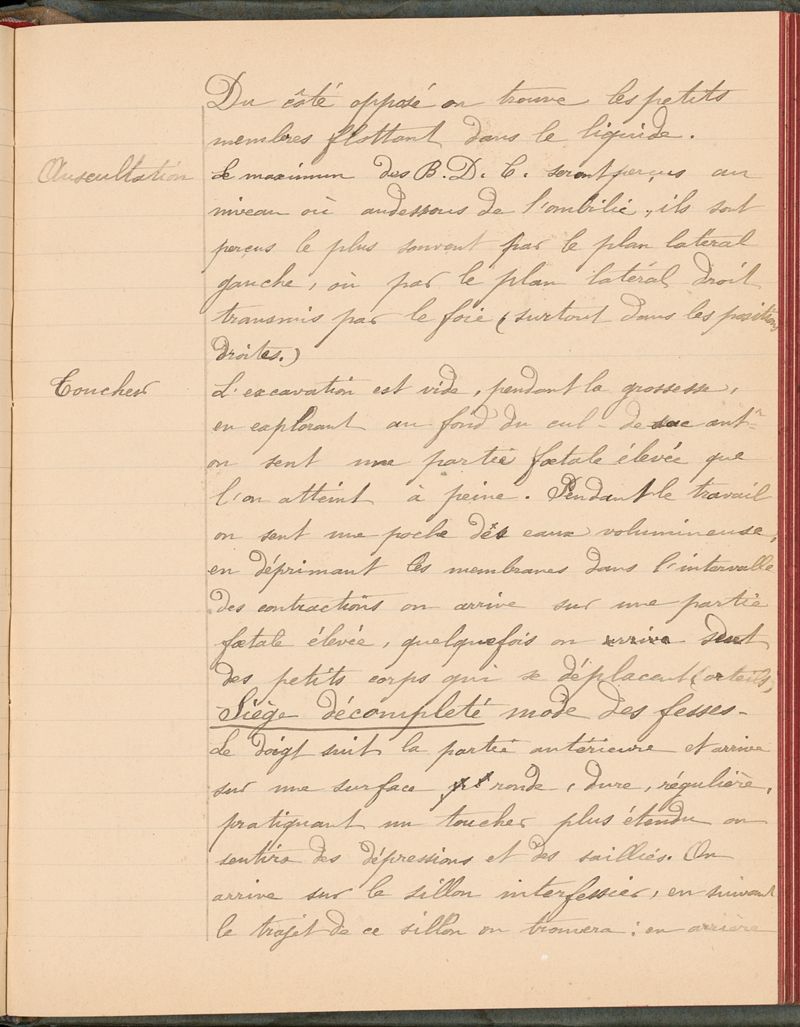 Du côté opposé on trouve les petits
membres flottant dans le liquide.
Auscultation
Le maximum des B. D. C. seront perçus au
niveau où audessous de l'ombilic, ils sont
perçus le plus souvent par le plan latéral
gauche, où par le plan latéral droit
transmis par le foie (surtout dans les positions
droites.)
Toucher
L'excavation est vide, pendant la grossesse,
en explorant au fond du cul-de sac antr
on sent une partie fœtale élevée que
l'on atteint à peine. Pendant le travail
on sent une poche des eaux volumineuse,
en déprimant les membranes dans l'intervalle
des contractions on arrive sur une partie
fœtale élevée, quelquefois on arrive sent
des petits corps qui se déplacent (orteils)
Siège décompleté mode des fesses-
Le doigt suit la partie antérieure et arrive
sur une surface ronde, dure, régulière,
pratiquant un toucher plus étendu on
sentira des dépressions et des saillies. On
arrive sur le sillon interfessier, en suivant
le trajet de ce sillon on trouvera : en arrière